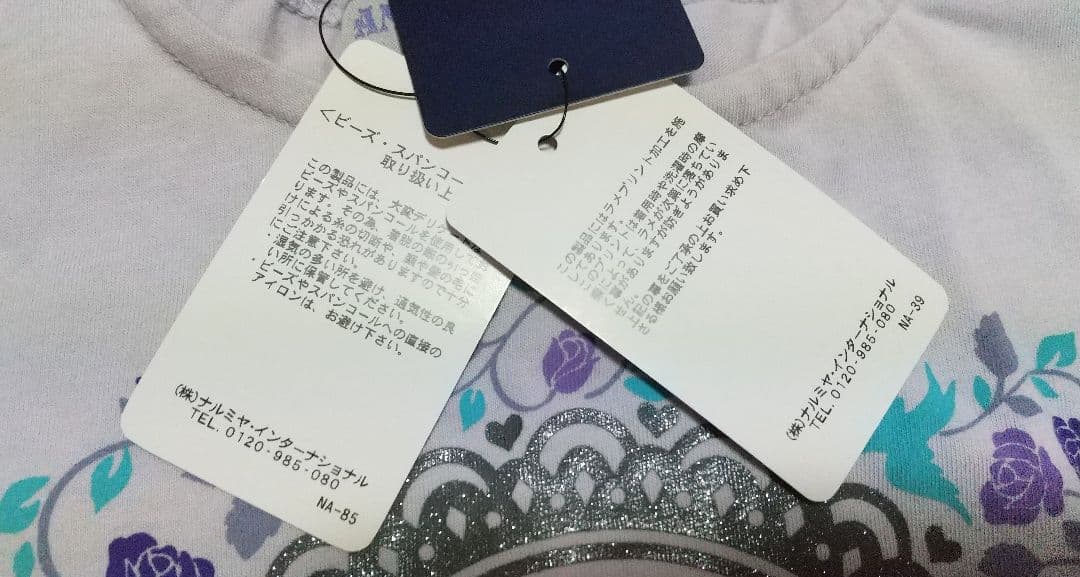 <ビーズ・スパンコー
取り扱い上
この製品には、大変デリ
ビーズやスパンコールを使用してお
ります。その為、着脱の際の引
けによる糸の切断や
引っかかる恐れがありますので十分
にご注意下さい。
・湿気の多い所を避け、通気性の良
い所に保管してください。
・ビーズやスパンコールへの直接の
アイロンは、お避け下さい。
(株)ナルミヤ・インターナショナル
TEL. 0120-985-080
NA-85
この製品にはラメプリント加工を施
してあります。
このプリントは着用時や洗濯時の摩
擦などによってラメが次第に落ちてい
く場合がありますが防ぎようがありま
せん。
上記の事をご了承の上お買い求め下
さる様お願い致します。
(株)ナルミヤ・インターナショナル
TEL. 0120-985-080
NA-39